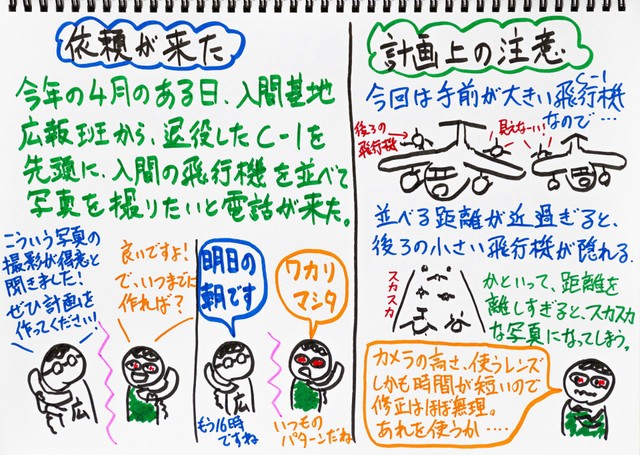 依頼が来た
今年の4月のある日、入間基地
広報班から、退役したC-1を
先頭に、入間の飛行機を並べて
写真を撮りたいと電話が来た。
こういう写真の
撮影が得意と
聞きました!
ぜひ計画を
作ってください!
良いですよ!
で、いつまでに
作れば?
広
明日の
朝です
ワカリ
マシタ
広
もう16時
ですね
いつもの
パターンだね
計画上の注意
C-1
今回は手前が大きい飛行機
なので…
後ろの
飛行機
見えなーい!
並べる距離が近過ぎると、
後ろの小さい飛行機が隠れる.
スカスカ
かといって、距離を
離しすぎると、スカスカ
な写真になってしまう。
カメラの高さ、使うレンズ
しかも時間が短いので
修正はほぼ無理。
あれを使うか‥‥